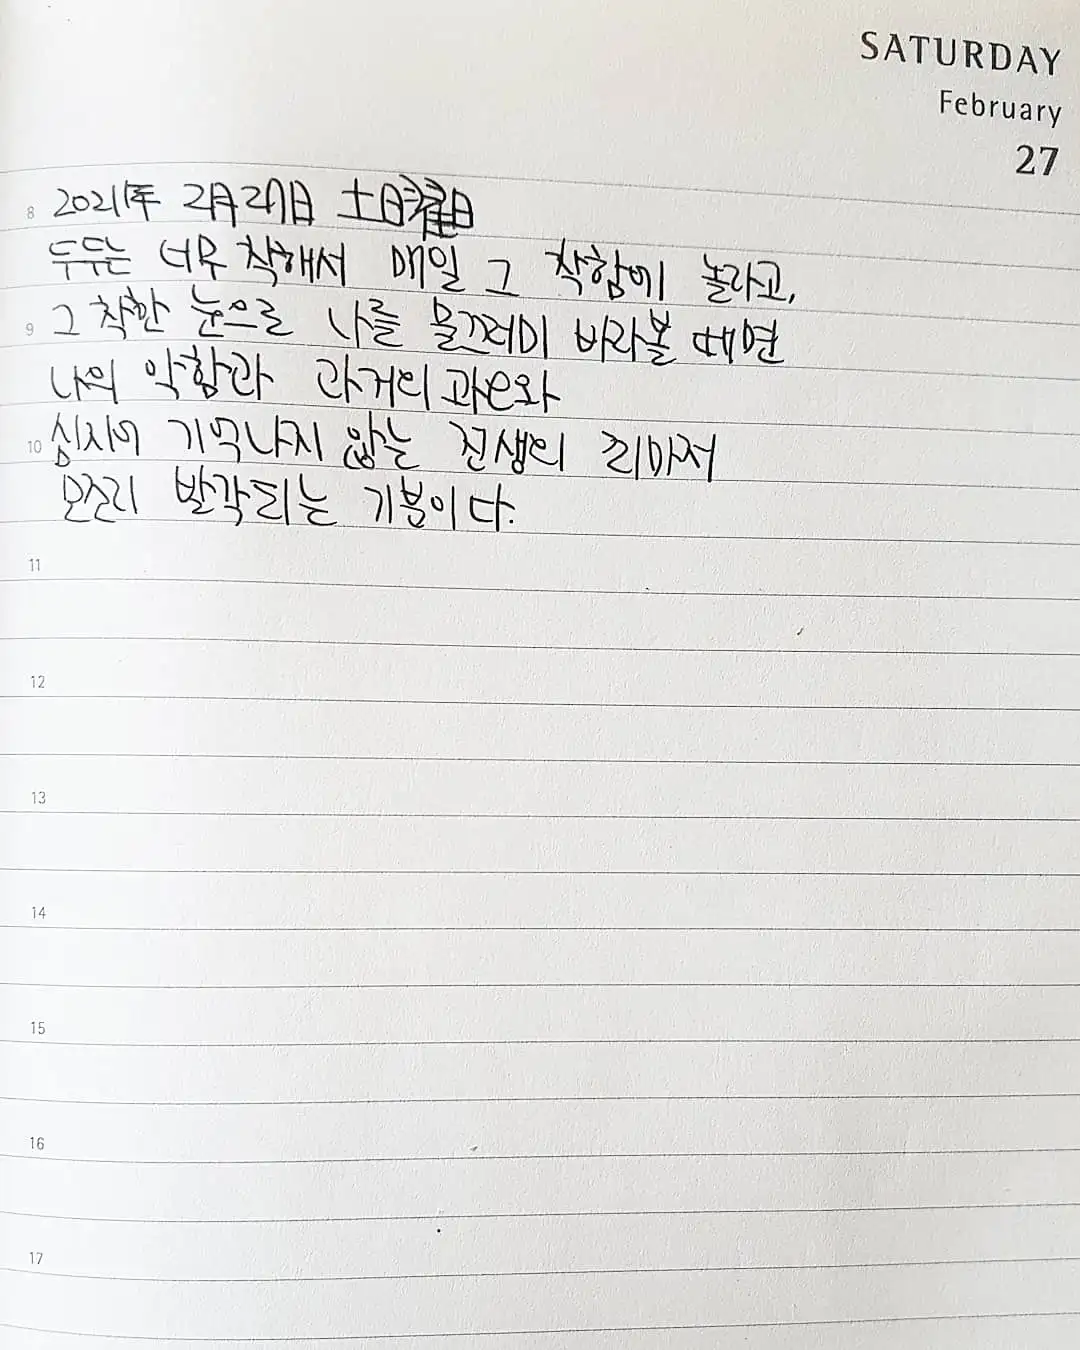 SATURDAY
February
27
8 2021年 2月 27日 土日曜日
두두는 너무 착해서 매일 그 착함에 놀라고,
9 그 착한 눈으로 나를 물끄러미 바라볼 때면
나의 악함과 과거의 과오와
10 심지어 기억나지 않는 전생의 죄마저
모조리 발각되는 기분이다.
11
12
13
14
15
16
17